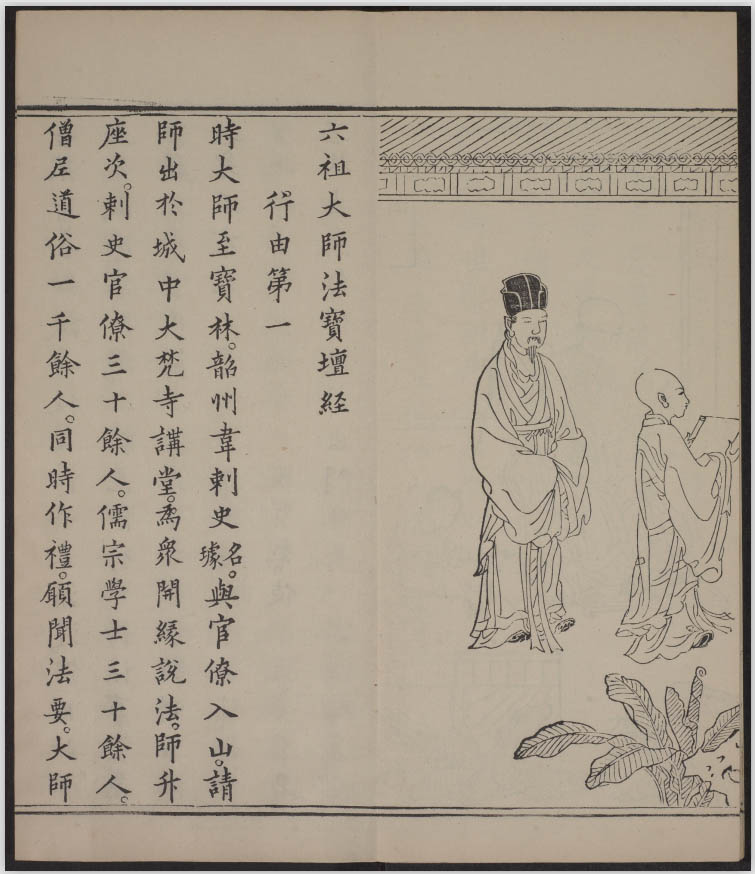 六祖大師法寶壇經
行由第一
時大師至寶林。韶州韋刺史名璩。與官僚入山。請
師出於城中大梵寺講堂。爲衆開緣說法。師升
座次。刺史官僚三十餘人。儒宗學士三十餘人。
僧尼道俗一千餘人。同時作禮。願聞法要。大師